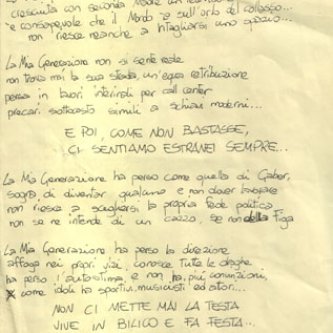 cresciuta con seconda Madre un
e consapevole che il Mondo è sull'orlo del collasso...
non riesce neanche a intagliarsi uno spazio...
La Mia Generazione non si sente
non trova mai la sua strada, un'equa retribuzione
persa in lavori interinali per call center
precari sottocosto simili a schiavi moderni...
E POI, COME NON BASTASSE,
CI SENTIAMO ESTRANEI SEMPRE...
La Mia Generazione ha perso come quella di Gaber,
sogna di diventar qualcuno e non dover
non riesce a scegliersi la propria fede politica
non se ne intende di un cazzo, se non della Figa
La Mia Generazione ha perso la direzione
affoga nei propri vizi, conosce tutte le droghe
ha perso l'autostima e non ha più convinzioni,
come idoli ha sportivi, musicisti ed attori...
NON CI METTE MAI LA TESTA
VIVE IN BILICO E FA FESTA...